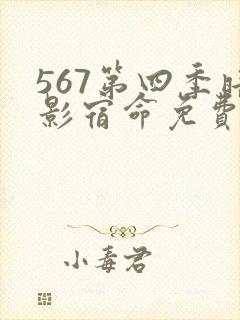 567第四季
影宿命免費
小毒君